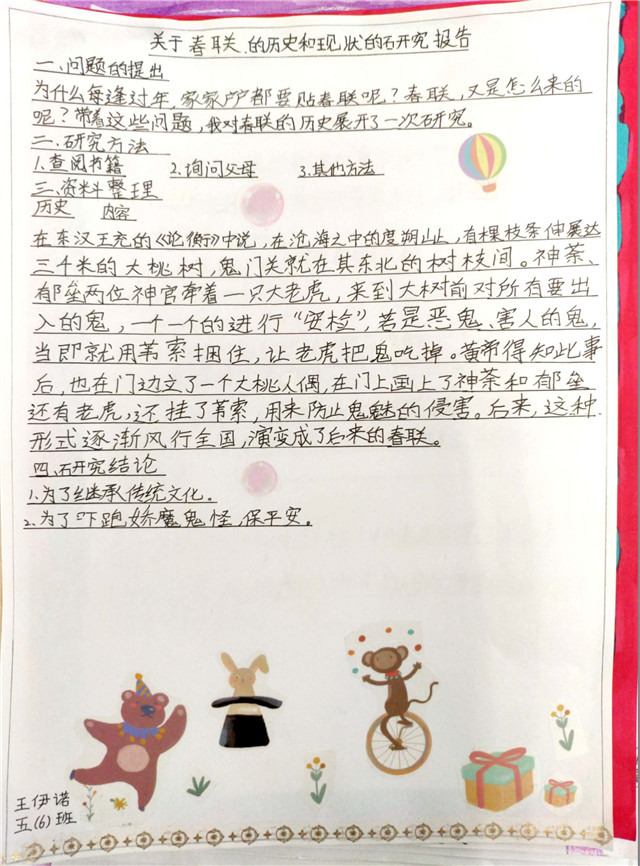 关于春联的历史和现状的研究报告
一、问题的提出
为什么每逢过年,家家户户都要贴春联呢?春联,又是怎么来的
呢?带着这些问题,我对春联的历史展开了一次研究。
二、研究方法
1.查阅书籍 2.询问父母 3.其他方法
三、资料整理
历史 内容
在东汉王充的《论衡》中说,在沧海之中的度朔山上,有棵枝条伸展达
三千米的大桃树,鬼门关就在其东北的树枝间。神荼、
郁垒两位神官牵着一只大老虎,来到大树前对所有要出
入的鬼,一个一个的进行“安检”,若是恶鬼、害人的鬼,
当即就用苇索捆住,让老虎把鬼吃掉。黄帝得知此事
后,也在门边立了一个大桃人偶,在门上画上了神荼和郁垒
还有老虎,还挂了苇索,用来防止鬼魅的侵害。后来,这种
形式逐渐风行全国,演变成了后来的春联。
四、研究结论
1.为了继承传统文化。
2.为了吓跑娇魔鬼怪,保平安。
王伊诺
五(6)班